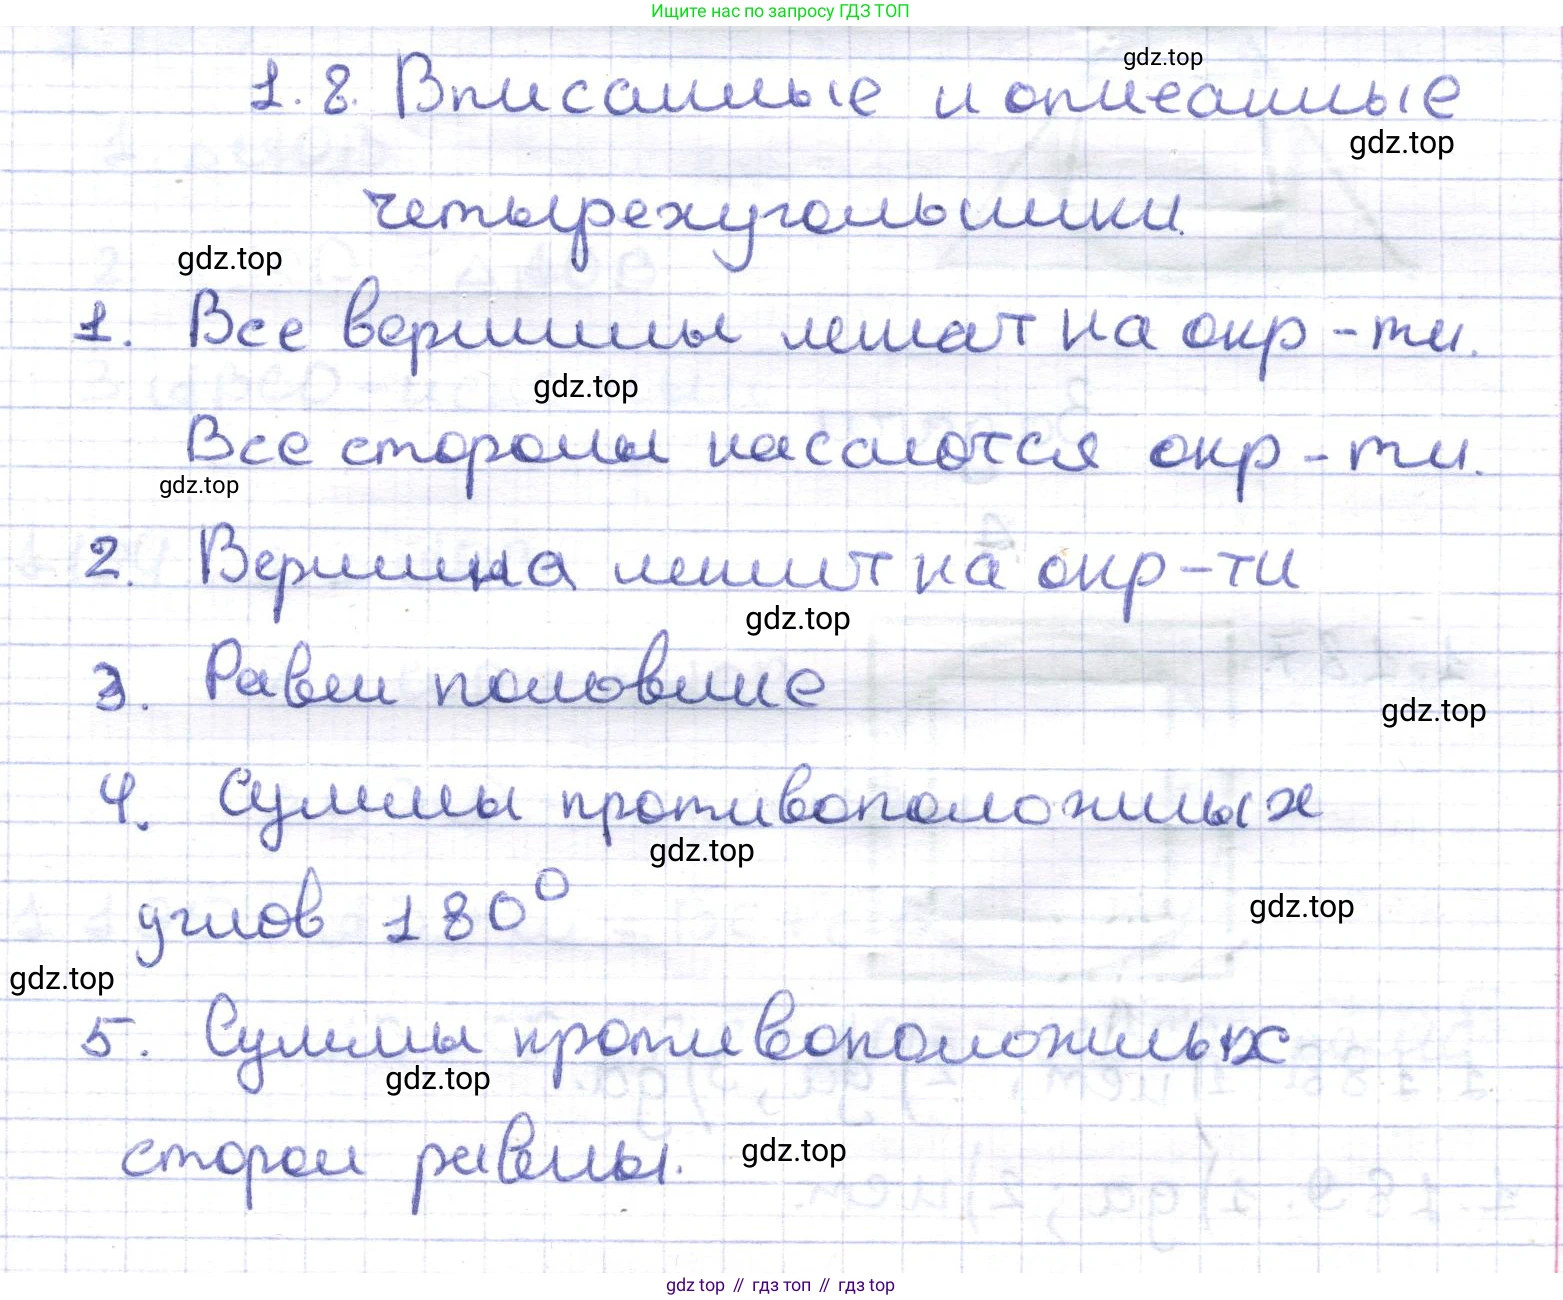 Ищите нас по запросу ГДЗ ТОП
gdz.top
1.8. Вписанные и описанные
gdz.top
четырехугольники.
gdz.top
1. Все вершины лежат на окр-ти.
gdz.top
Все стороны касаются окр-ти.
gdz.top
2. Вершина лежит на окр-ти
gdz.top
3. Равен половине
gdz.top
4. Суммы противоположных
gdz.top
углов 180°
gdz.top
gdz.top
5. Суммы противоположных
gdz.top
сторон равны.
gdz.top
gdz top // гдз топ // гдз top